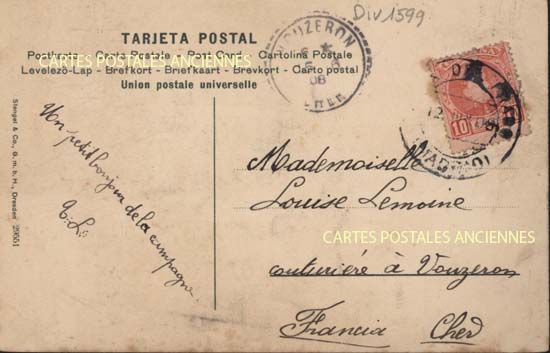 Div 1599
TARJETA POSTAL
Postkarte - Carte Postale - Post Card - Cartolina Postale
Levelező-Lap - Brefkort - Briefkaart - Brevkort - Carte postale
Union postale universelle
CARTES POSTALES ANCIENNES
VOUZERON
08
CHER
10
Stengel & Co., G. m. b. H., Dresden 29551
Un petit bonjour de la campagne
Mademoiselle
Louise Lemoine
CARTES POSTALES ANCIENNES
couturière à Vouzeron
Francia Cher